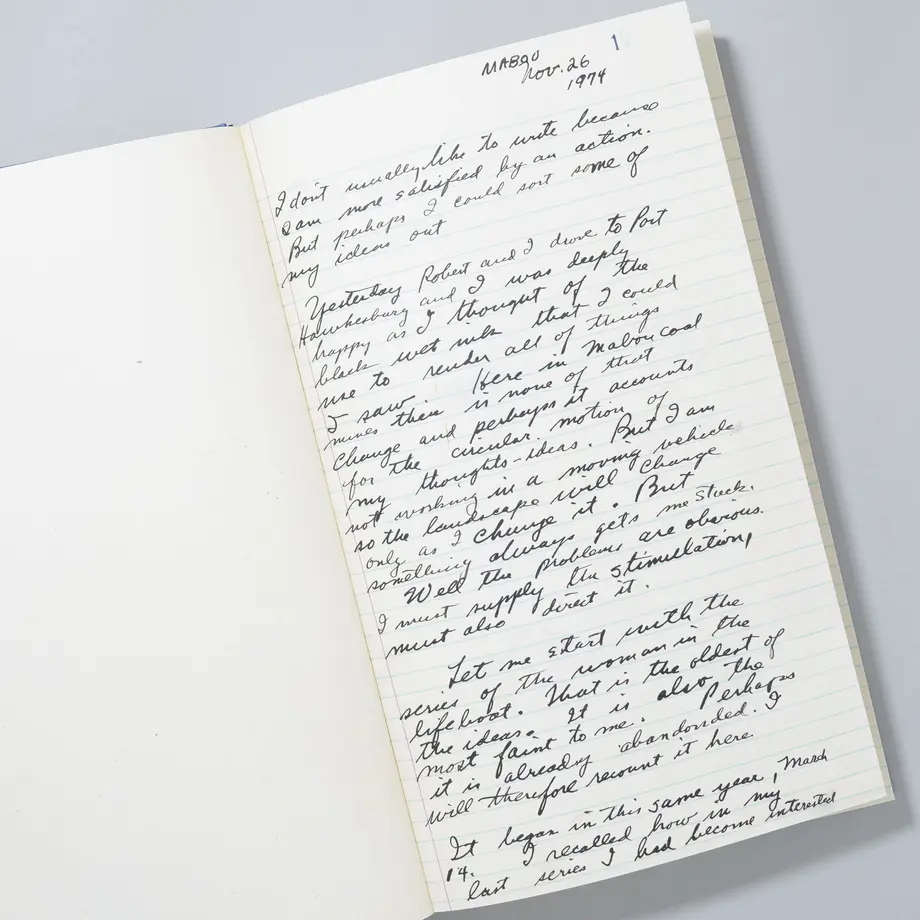 MABOU 1
Nov. 26
1974
I don't usually like to write because
I am more satisfied by an action.
But perhaps I could sort some of
my ideas out
Yesterday Robert and I drove to Port
Hawkesbury and I was deeply
happy as I thought of the
black wet ink that I could
use to render all of things
I saw. Here in Mabou coal
mines there is none of that
change and perhaps it accounts
for the circular motion of
my thoughts-ideas. But I am
not working in a moving vehicle
so the landscape will change
only as I change it. But
something always gets me stuck.
Well the problems are obvious.
I must supply the stimullation,
must also direct it.
Let me start with the
series of the woman in the
lifeboat. That is the oldest of
the ideas. It is also the
most faint to me. Perhaps
it is already abandonded. I
will therefore recount it here
It began in this same year, March
14. I recalled how in my
last series I had become interested